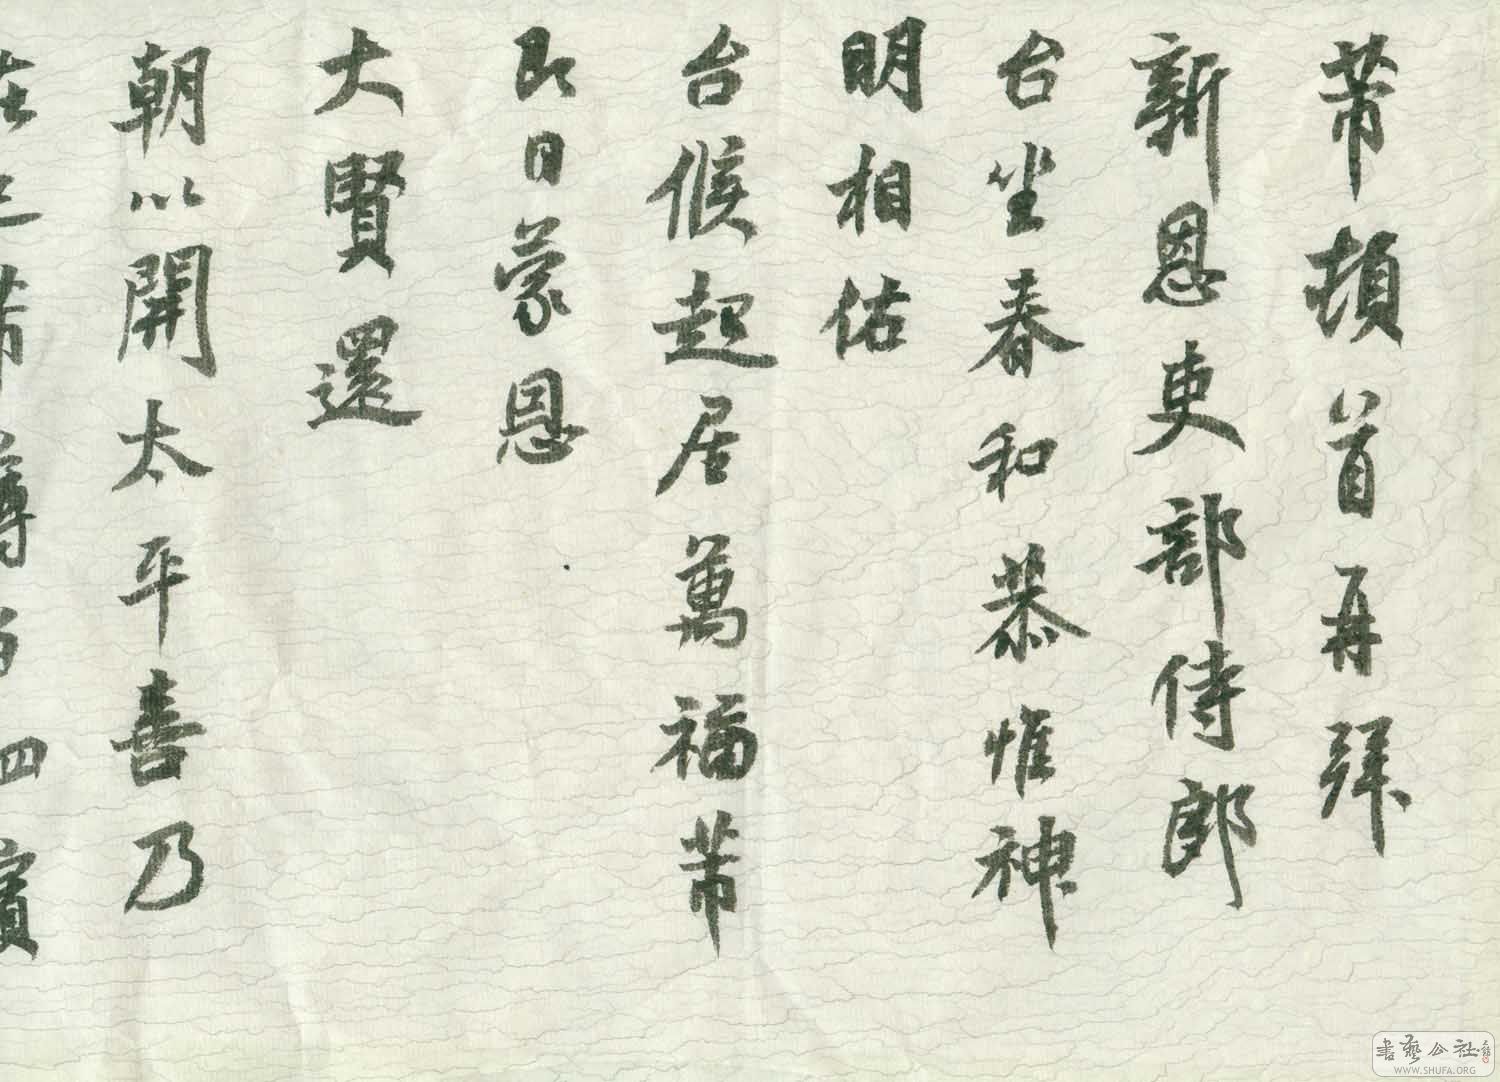 芾頓首再拜
新恩吏部侍郎
台坐春和恭惟神
明相佑
台候起居萬福芾
即日蒙恩
大賢還
朝以開太平喜乃
書藝公社
WWW.SHUFA.ORG